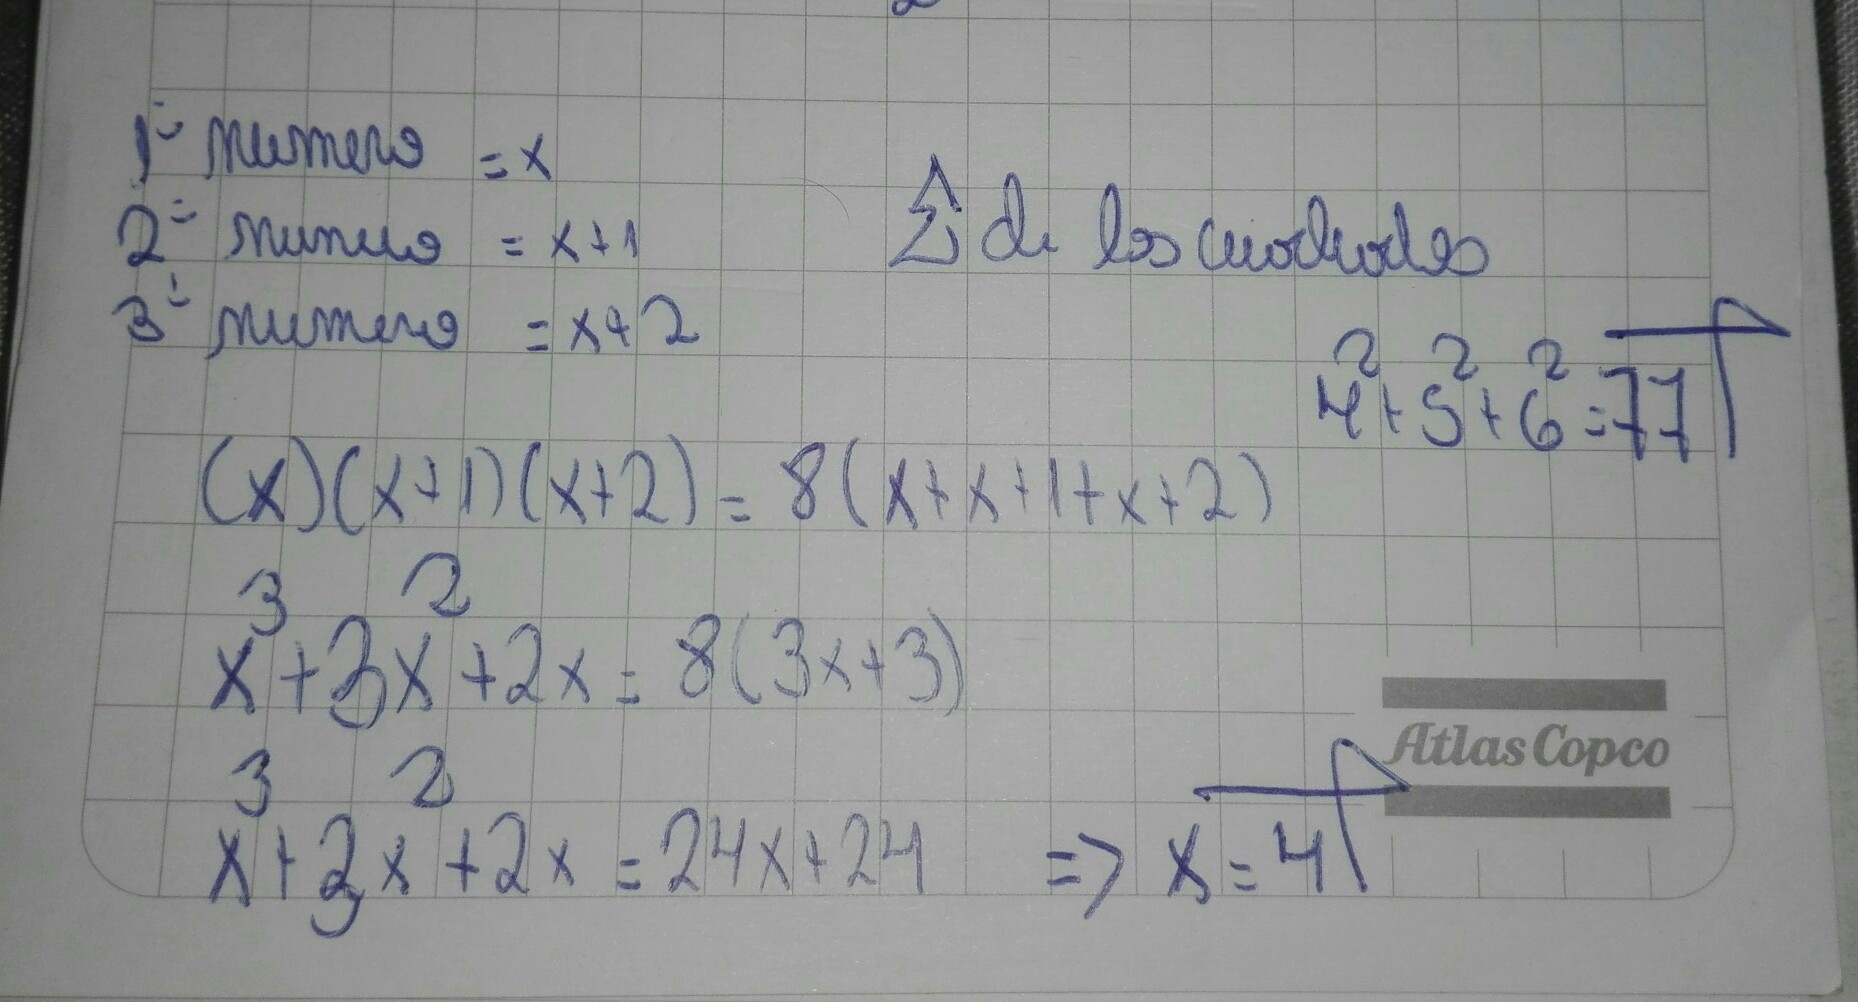 1º numero = x
2º numero = x+1
3º numero = x+2
Σ de los cuadrados
4²+5²+6²=77
(x)(x+1)(x+2) = 8(x+x+1+x+2)
x³+3x²+2x = 8(3x+3)
x³+3x²+2x = 24x+24 => x=4
Atlas Copco